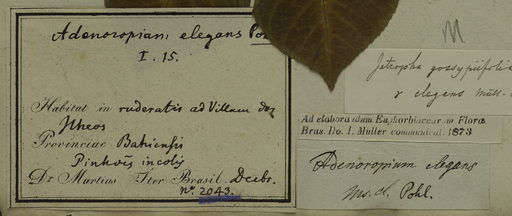 Adenoropium elegans Pohl
I. 15.
Habitat in ruderatis ad Villam dos
Ilheos
Provinciae Bahiensis
Pinhoës incolis
Dr. Martius Iter Brasil. Decbr.
nr. 2043.
M
Jatropha gossypiifolia
γ elegans Müll.
Ad elaborandum Euphorbiacearum Florae
Bras. Do. I. Müller communicat. 1873
Adenoropium elegans
ms. cl. Pohl.